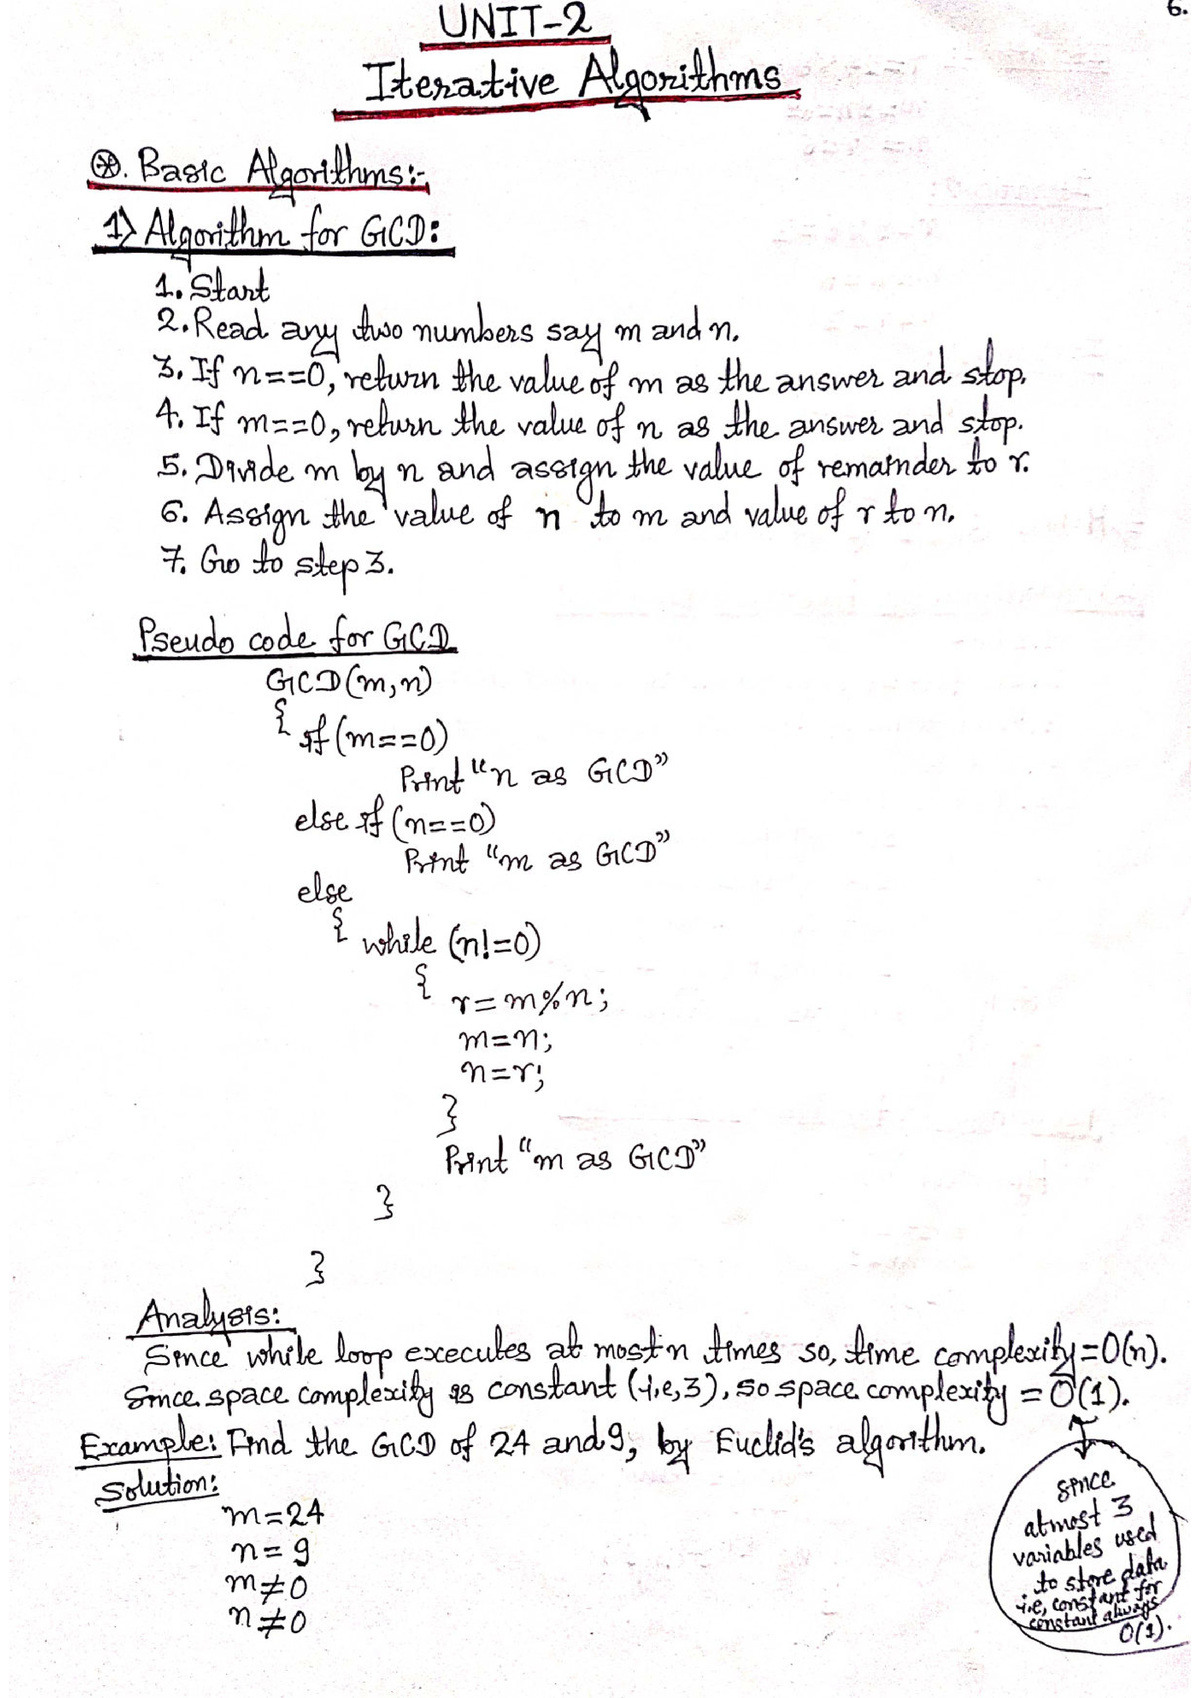 6.
UNIT-2
Iterative Algorithms
⊛. Basic Algorithms:-
1) Algorithm for GCD:
1. Start
2. Read any two numbers say m and n.
3. If n==0, return the value of m as the answer and stop.
4. If m==0, return the value of n as the answer and stop.
5. Divide m by n and assign the value of remainder to r.
6. Assign the value of n to m and value of r to n.
7. Go to step 3.
Pseudo code for GCD
GCD(m,n)
{
if (m==0)
Print "n as GCD"
else if (n==0)
Print "m as GCD"
else
{ while (n!=0)
{
r=m%n;
m=n;
n=r;
}
Print "m as GCD"
}
}
Analysis:
Since while loop executes at most n times so, time complexity=O(n).
Since space complexity is constant (i.e, 3), so space complexity = O(1).
Example: Find the GCD of 24 and 9, by Euclid's algorithm.
Solution:
m=24
n=9
m≠0
n≠0
since
atmost 3
variables used
to store data
i.e, constant for
constant always
O(1).